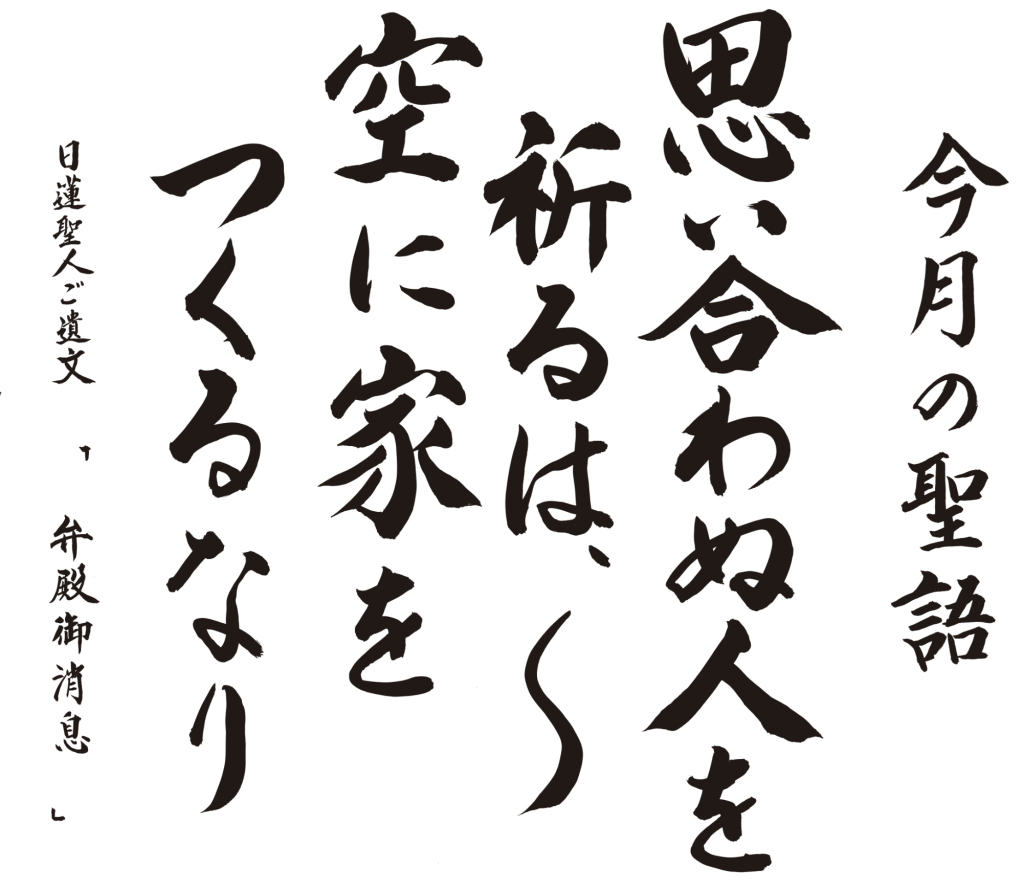 今月の聖語
思い合わぬ人を
祈るは、〜
空に家を
つくるなり
日蓮聖人ご遺文 「弁殿御消息」